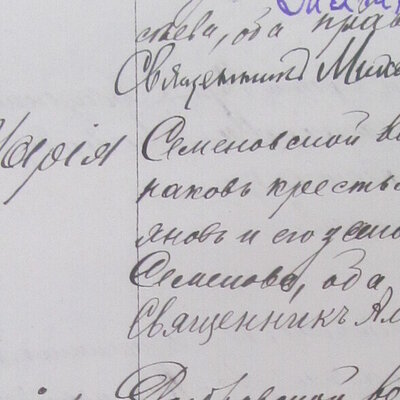 ства, оба прав
Священникъ Миха
Марія
Семеновской во
наковъ кресть
яновъ и его зако
Семенова, оба
Священникъ Ал